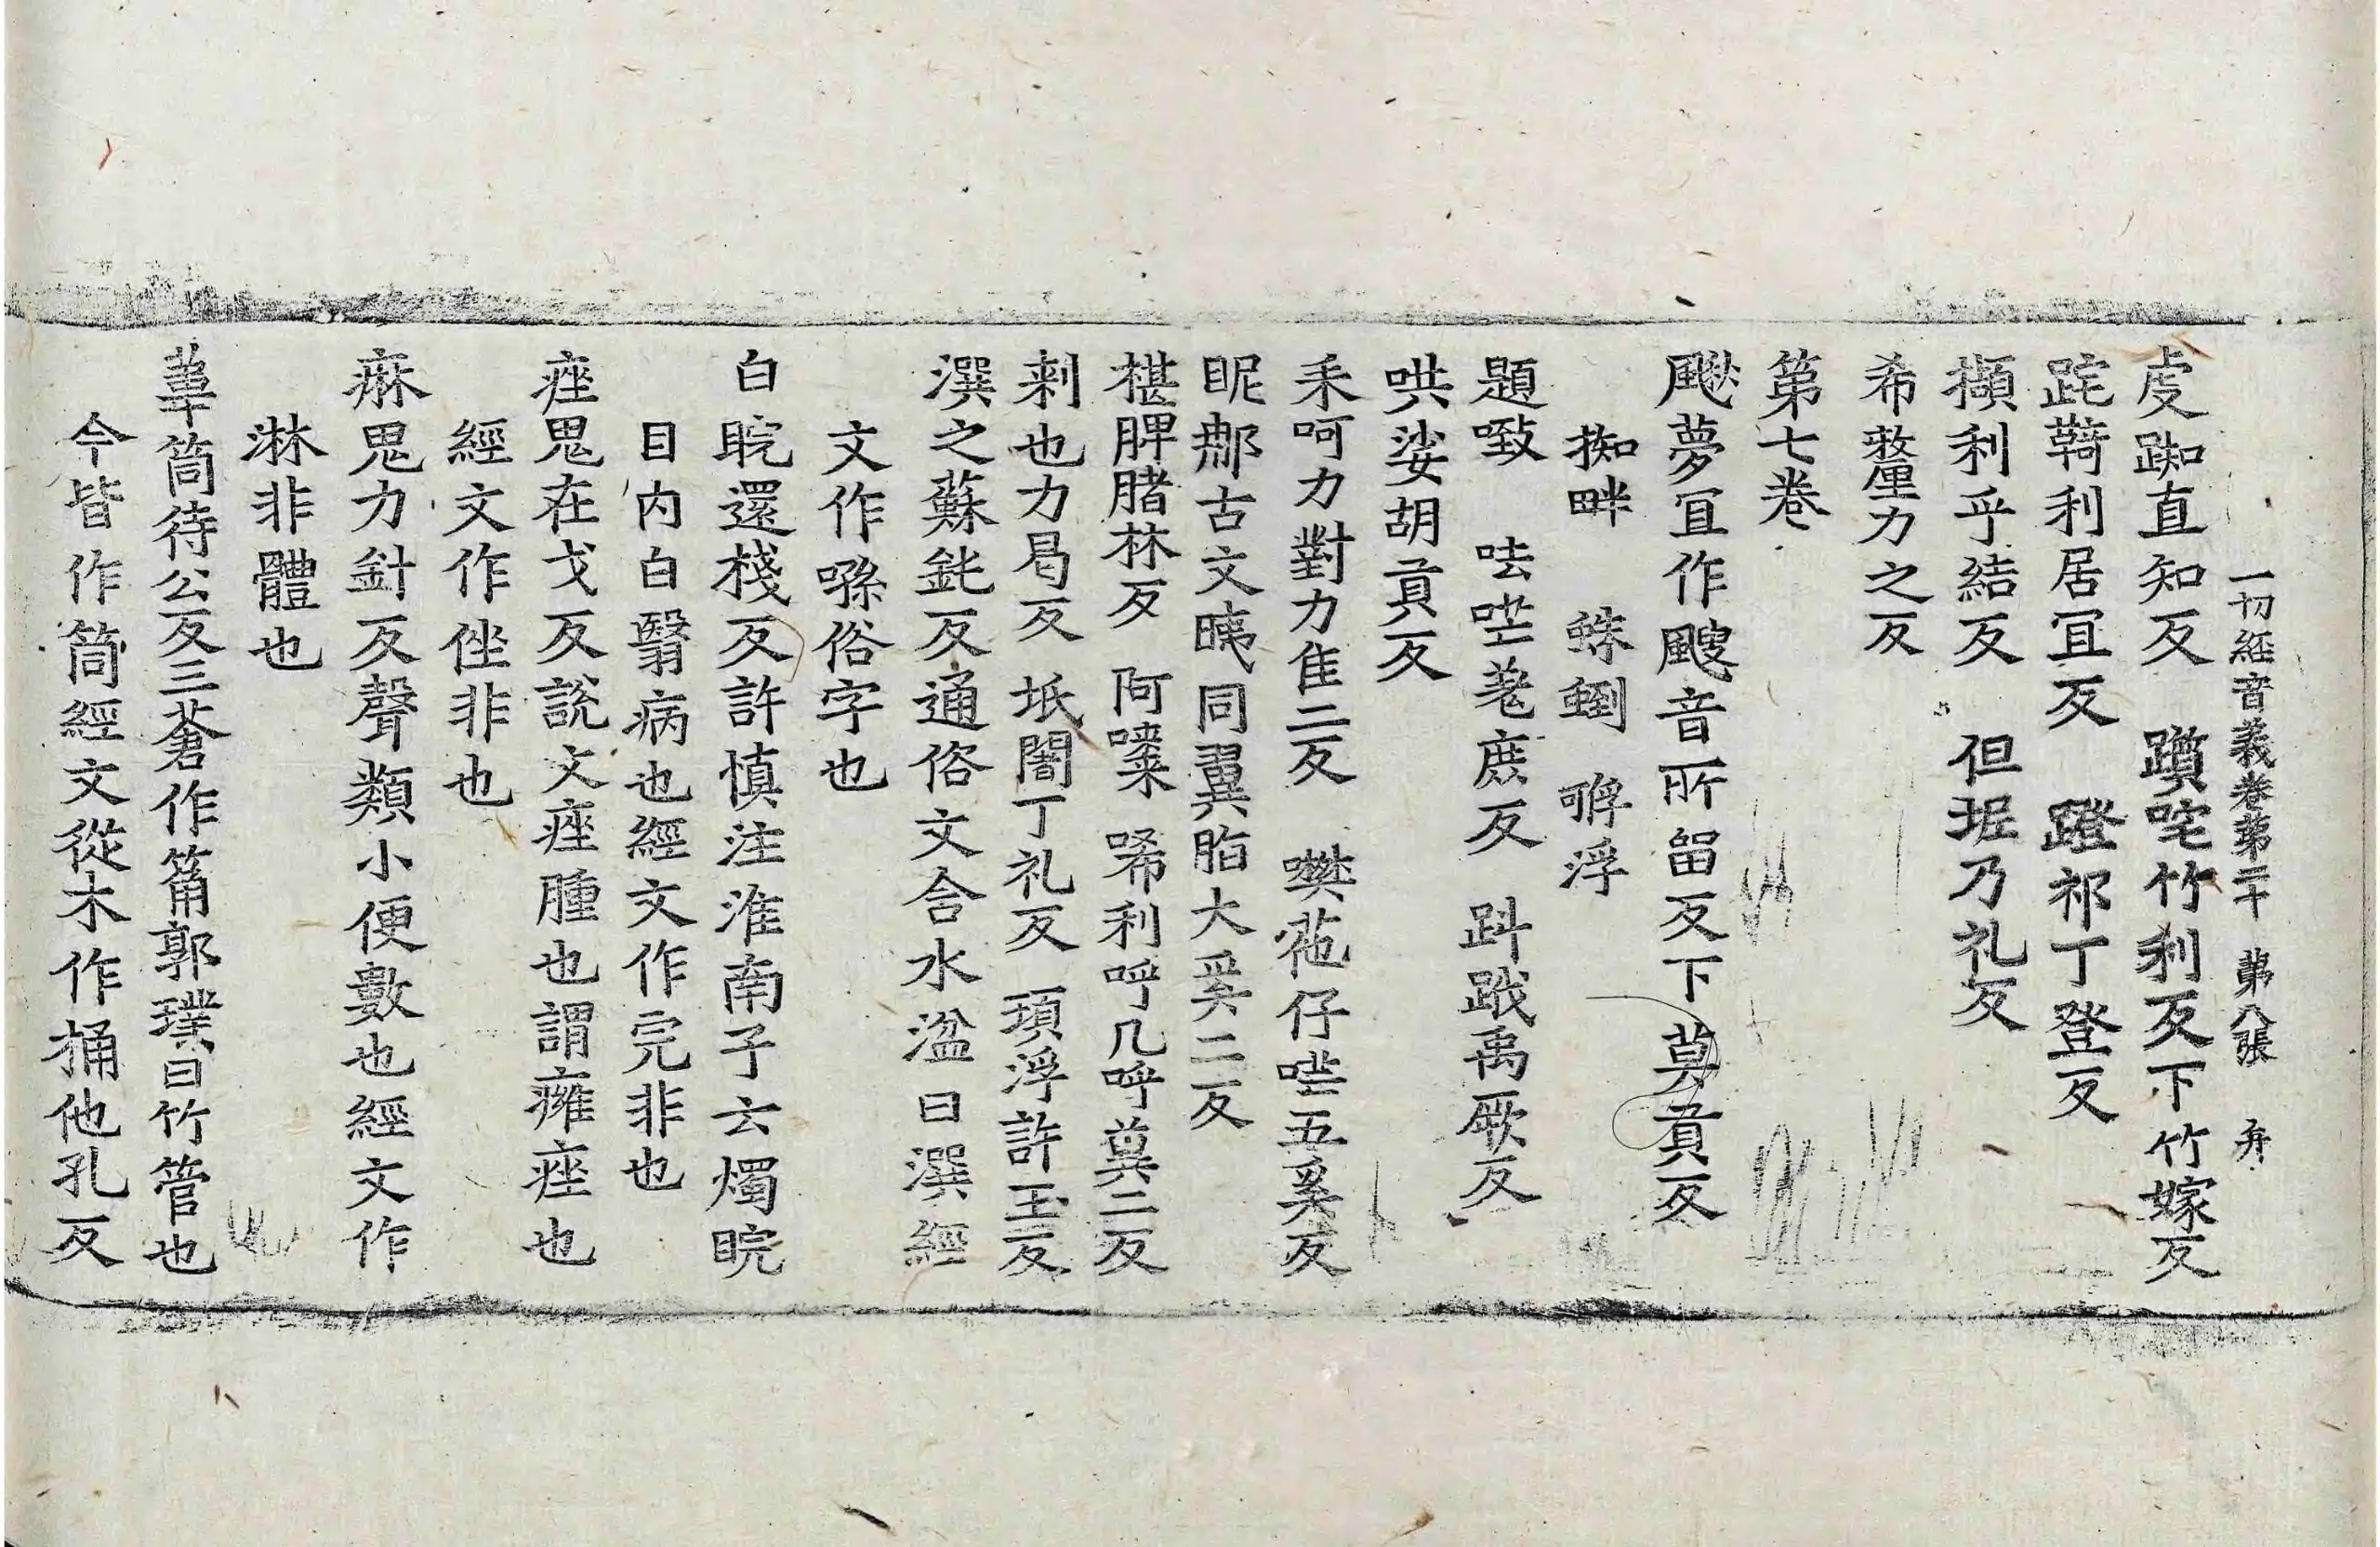 一切経音義卷第二十 第八張 弁
虔踟直知反 躓咤竹利反下竹嫁反
跎鞯利居冝反 蹬祁丁登反
擷利乎結反 但坭乃礼反
希嫠力之反
第七卷
颷夢冝作颼音所留反下莫貢反
掬畔 蛛蛚 嘚浮
題嗸 呿㘴耄庶反 跓跋禹厥反
哄娑胡貢反
耒呵力對力隹二反 樊䓔仔㘴五奚反
眤𨙻古文眱同翼脂大奚二反
椹脾腤林反 阿㗚 唏利呼几呼冀二反
剌也力曷反 坻闍丁礼反 頊浮許玉反
潠之蘇鈋反通俗文含水湓曰潠經
文作㗔俗字也
白睆還棧反許慎注淮南子云燭睆
目内白翳病也經文作完非也
痤鬼在戈反說文痤腫也謂癰痤也
經文作侳非也
痳鬼力針反聲類小便數也經文作
淋非體也
葷筒待公反三蒼作筩郭璞曰竹管也
今皆作筒經文從木作桶他孔反